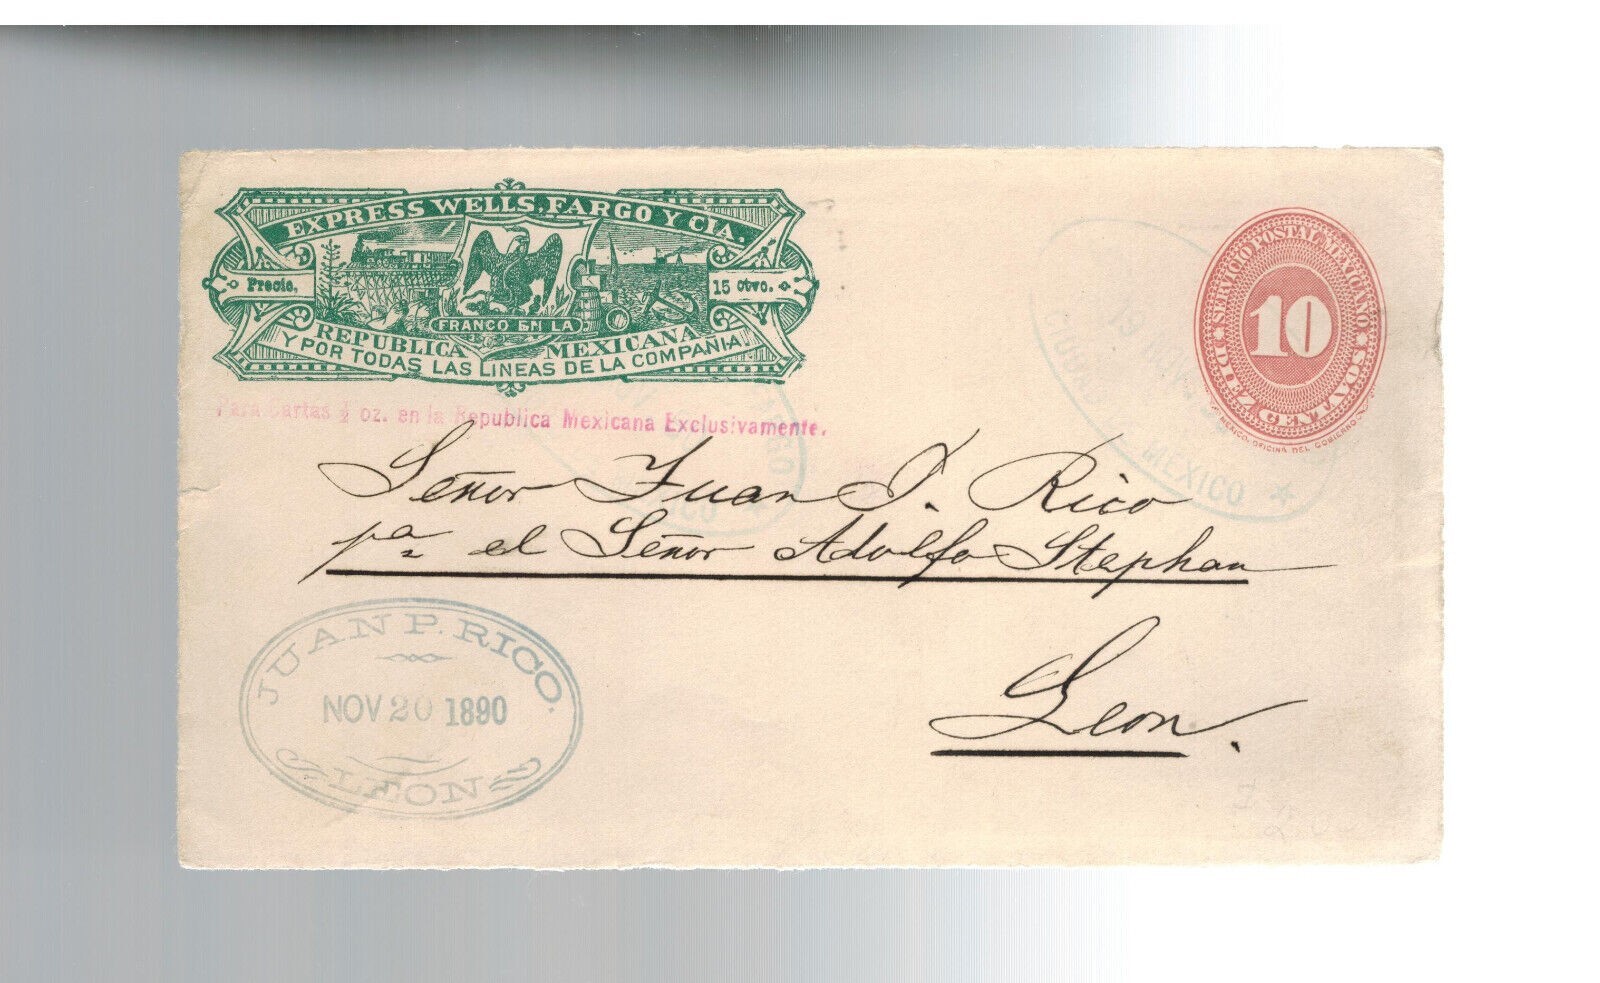 EXPRESS WELLS, FARGO Y CIA.
Precio, 15 Ctvo.
FRANCO EN LA
REPUBLICA MEXICANA
Y POR TODAS LAS LINEAS DE LA COMPAÑIA.
Para Cartas ½ oz. en la Republica Mexicana Exclusivamente.
SERVICIO POSTAL MEXICANO
10
DIEZ CENTAVOS
MEXICO, OFICINA DEL GOBIERNO
MEXICO
Señor Juan P. Rico
pa el Señor Adolfo Stephan
Leon.
JUAN P. RICO.
NOV 20 1890
LEON